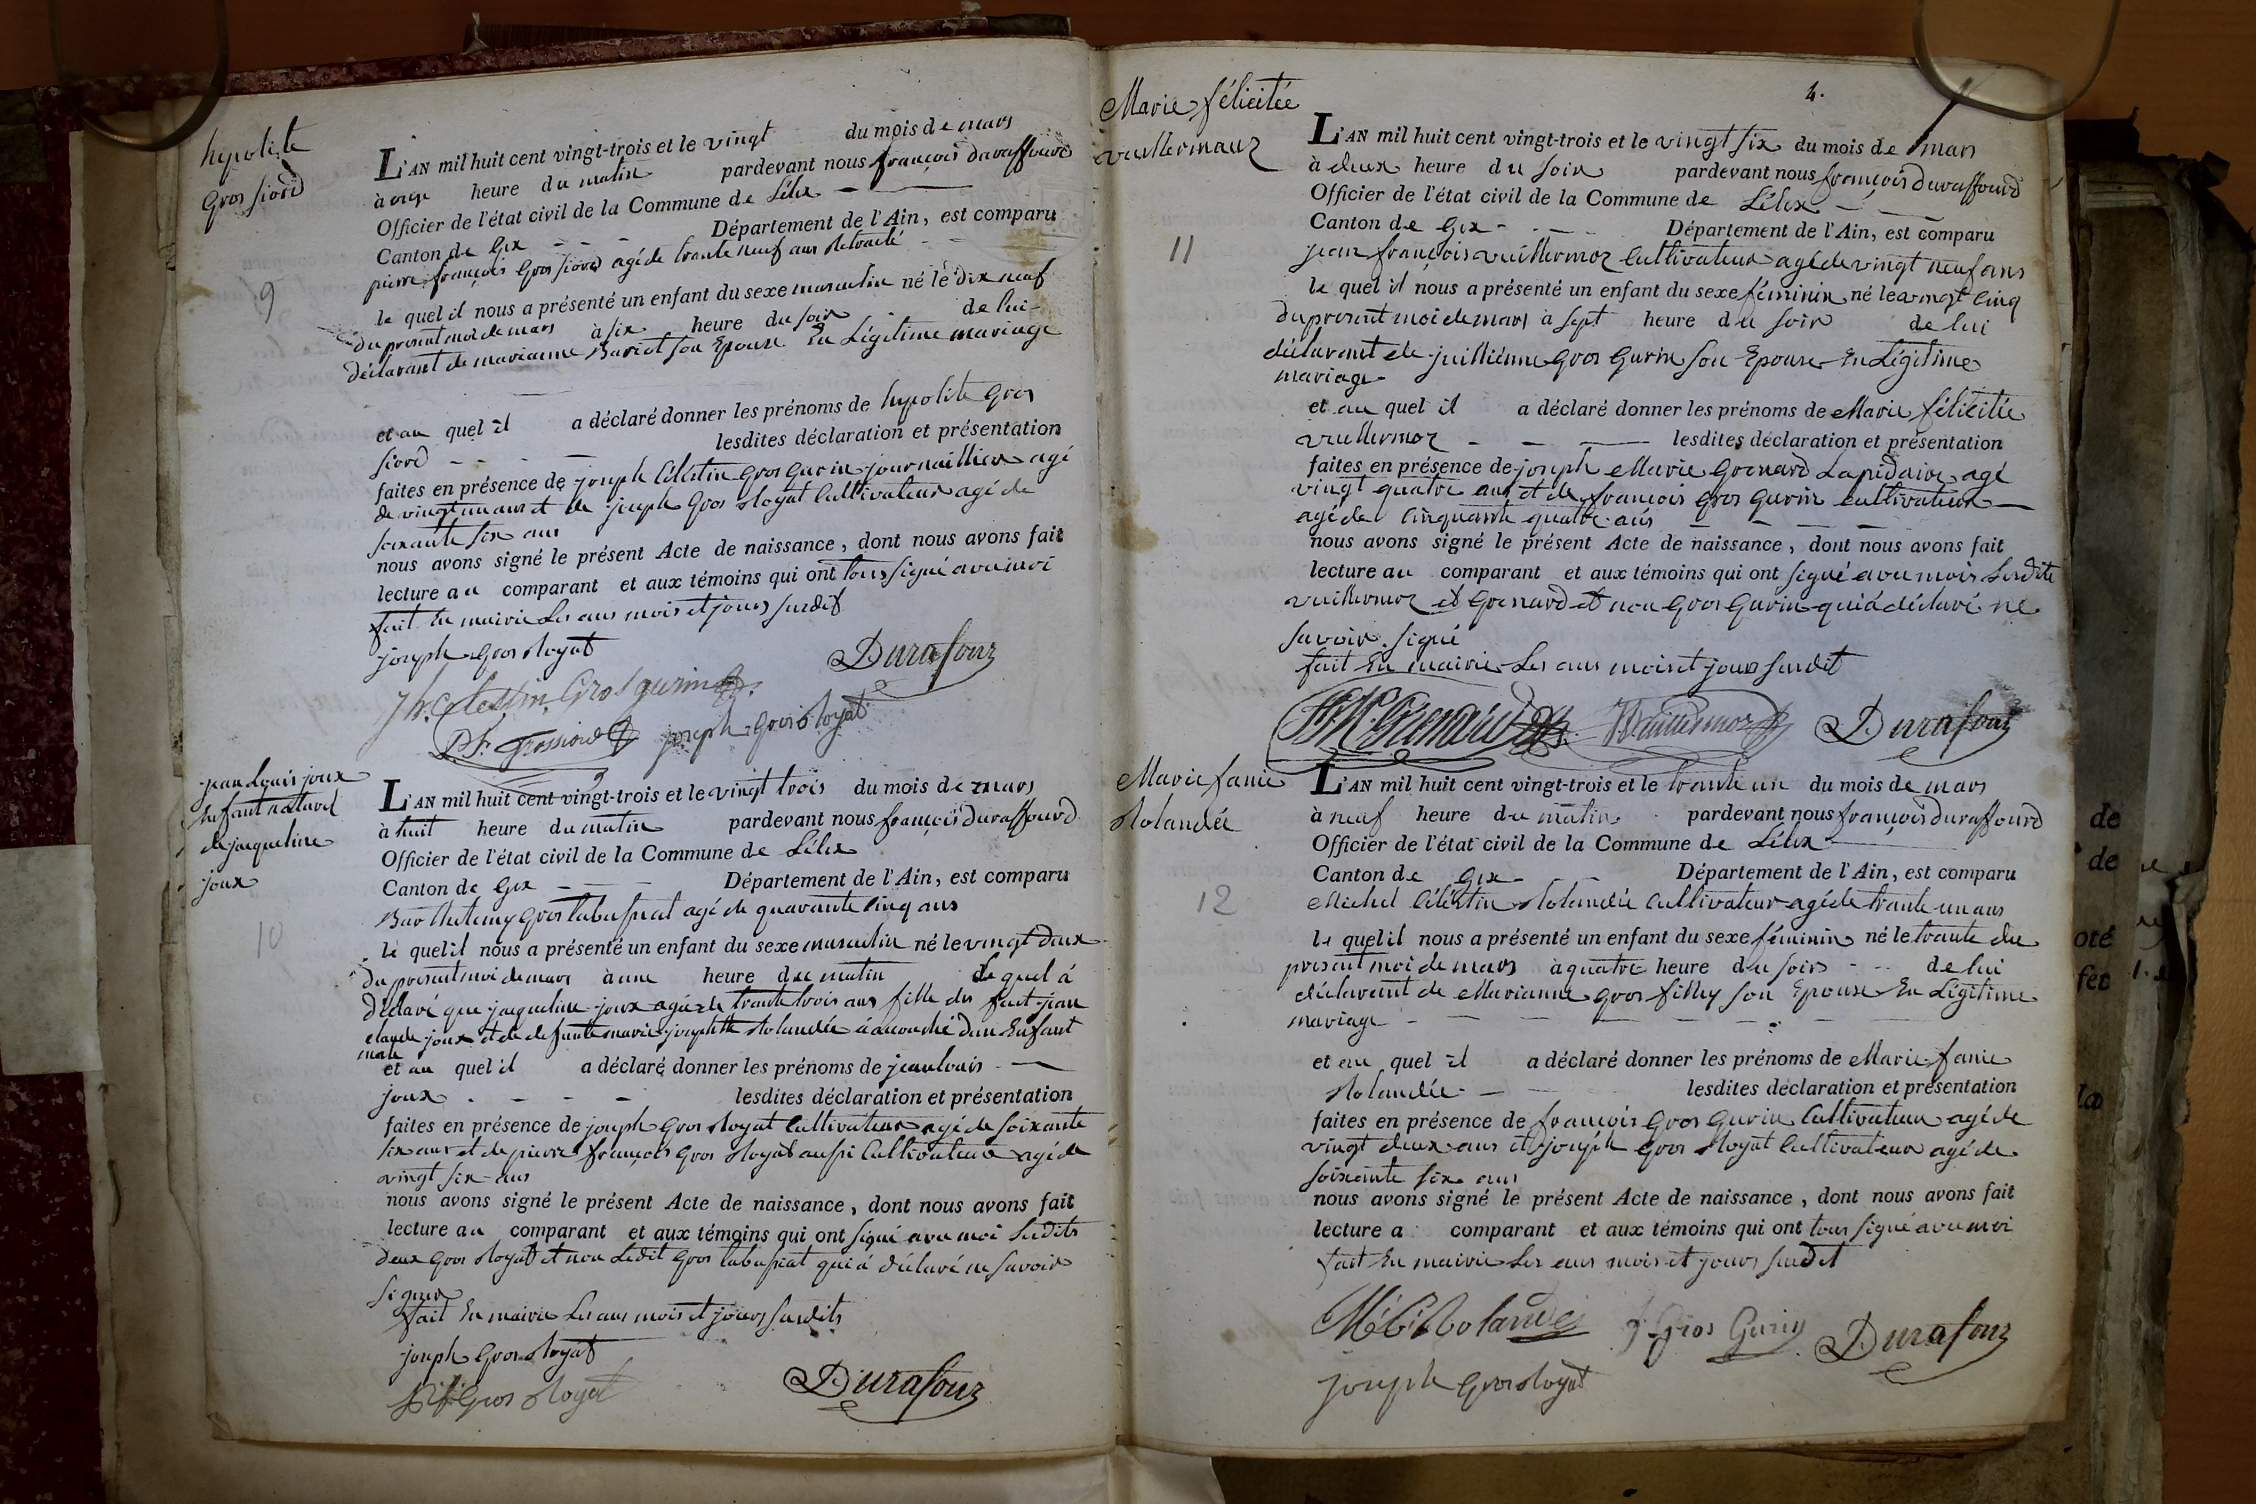 hypolite
Gros fiord
9
L'AN mil huit cent vingt-trois et le vingt du mois de mars
à onze heure du matin pardevant nous françois duraffourd
Officier de l'état civil de la Commune de Lélex
Canton de Gex - - - Département de l'Ain, est comparu
pierre françois Gros fiord agé de trante neuf ans
le quel il nous a présenté un enfant du sexe masculin né le dix neuf
du present moi de mars à six heure du soir de lui
déclarant de marianne Bariot son Epouse En Légitime mariage
et au quel il a déclaré donner les prénoms de hypolite Gros
fiord - - - - lesdites déclaration et présentation
faites en présence de joseph Célestin Gros Gurin journaillier agé
de vingt un ans et de joseph Gros Royat Cultivateur agé de
soixante six ans
nous avons signé le présent Acte de naissance, dont nous avons fait
lecture au comparant et aux témoins qui ont tous signé avec moi
fait En mairie Les ans mois et jours susdit
joseph Gros Royat Durafour
Jh. Celestin Gros gurin
P. f. Grossiord joseph Gros Royat
jean Louis joux
Enfant naturel
de jacqueline
joux
10
L'AN mil huit cent vingt-trois et le vingt trois du mois de mars
à huit heure du matin pardevant nous françois duraffourd
Officier de l'état civil de la Commune de Lélex
Canton de Gex - - - Département de l'Ain, est comparu
Barthelemy Gros tabussiat agé de quarante Cinq ans
le quel il nous a présenté un enfant du sexe masculin né le vingt deux
du present moi de mars à une heure du matin le quel à
déclaré que jacqueline joux agée de trante trois ans fille du fut jean
claude joux et de defunte marie josephte Rolandée à acouché d'un Enfant
male
et au quel il a déclaré donner les prénoms de jean louis
joux - - - - lesdites déclaration et présentation
faites en présence de joseph Gros Royat Cultivateur agé de soixante
six ans et de pierre françois Gros Royat aussi Cultivateur agé de
vingt six ans
nous avons signé le présent Acte de naissance, dont nous avons fait
lecture au comparant et aux témoins qui ont signé avec moi Susdits
deux Gros Royat et non Ledit Gros tabussiat qui à déclaré ne Savoir
Signer
fait En mairie Les ans mois et jours susdits
joseph Gros Royat
P. f. Gros Royat Durafour
4.
Marie félicitée
vuillermauz
11
L'AN mil huit cent vingt-trois et le vingt six du mois de mars
à deux heure du soir pardevant nous françois duraffourd
Officier de l'état civil de la Commune de Lélex
Canton de Gex - - - Département de l'Ain, est comparu
jean françois vuillermoz Cultivateur agé de vingt neuf ans
le quel il nous a présenté un enfant du sexe féminin né le vingt Cinq
du present moi de mars à sept heure du soir de lui
déclarant de juillienne Gros Gurin son Epouse En Légitime
mariage
et au quel il a déclaré donner les prénoms de Marie félicitée
vuillermoz - - - lesdites déclaration et présentation
faites en présence de joseph Marie Grenard Lapidaire agé
vingt quatre ans et de françois Gros Gurin cultivateur
agé de Cinquante quatre ans
nous avons signé le présent Acte de naissance, dont nous avons fait
lecture au comparant et aux témoins qui ont signé avec moi Susdite
vuillermoz et Grenard et non Gros Gurin qui à déclaré ne
savoir signé
fait En mairie Les ans mois et jour susdit
JM Grenard Vuillermoz Durafour
Marie fanie
Rolandée
12
L'AN mil huit cent vingt-trois et le trante un du mois de mars
à neuf heure du matin pardevant nous françois duraffourd
Officier de l'état civil de la Commune de Lélex
Canton de Gex - - Département de l'Ain, est comparu
Michel Célestin Rolandée Cultivateur agé de trante un ans
le quel il nous a présenté un enfant du sexe féminin né le trante du
present moi de mars à quatre heure du soir - - de lui
déclarant de Marianne Gros filley son Epouse En Légitime
mariage
et au quel il a déclaré donner les prénoms de Marie fanie
Rolandée - - lesdites déclaration et présentation
faites en présence de françois Gros Gurin Cultivateur agé de
vingt deux ans et joseph Gros Royat Cultivateur agé de
soixante six ans
nous avons signé le présent Acte de naissance, dont nous avons fait
lecture a comparant et aux témoins qui ont tous signé avec moi
fait En mairie Les ans mois et jours susdit
M. C. Rolandé f. Gros Gurin Durafour
joseph Gros Royat
de
de
oté
fec
la